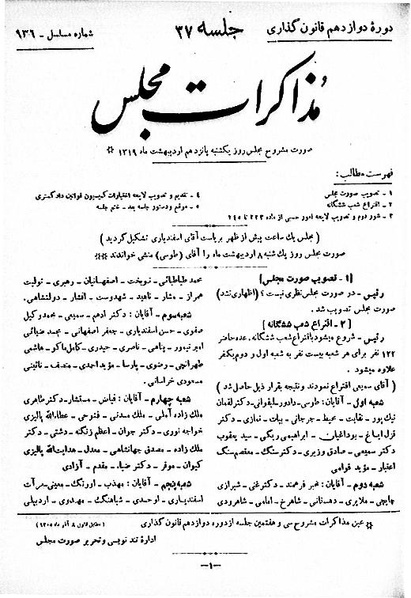 دورهٔ دوازدهم قانون گذاری
جلسه ۳۷
شماره مسلسل - ۹۳۶
مذاکرات مجلس
صورت مشروح مجلس روز یکشنبه پانزدهم اردیبهشت ماه ۱۳۱۹ *
فهرست مطالب:
۱ - تصویب صورت مجلس
۲ - اقتراع شعب ششگانه
۳ - شور دوم و تصویب لایحه امور حسبی از ماده ۲۲۳ تا ۲۴۵
۴ - تقدیم و تصویب لایحه اختیارات کمیسیون قوانین دادگستری
۵ - موقع و دستور جلسه بعد - ختم جلسه
( مجلس یک ساعت پیش از ظهر بریاست آقای اسفندیاری تشکیل گردید )
صورت مجلس روز یک شنبه ۸ اردیبهشت ماه را آقای (طوسی) منشی خواندند *
[ ۱ - تصویب صورت مجلس ]
رئیس - در صورت مجلس نظری نیست؟ (اظهاری نشد)
صورت مجلس تصویب شد.
[ ۲ - اقتراع شعب ششگانه ]
رئیس - شروع میشود باقتراع شعب ششگانه. عده حاضر
۱۲۲ نفر برای هر شعبه بیست نفر به شعب اول و دوم یکنفر
علاوه میشود.
( آقای سمیعی اقتراع نمودند و نتیجه بقرار ذیل حاصل شد )
شعبه اول - آقایان: طوسی - دادور - لیقوانی - دکتر لقمان
نیک پور - نقابت - محیط - جرجانی - بیات - نمازی - دکتر
قزل ایاغ - بوداغیان - ابراهیمی ریگی - سید یعقوب
دکتر سمیعی - صادق وزیری - دکتر سنگ - معتصم سنگ
اعتبار - مؤید قوامی
شعبه دوم - آقایان: مخبر فرهمند - دکتر غنی - شیرازی
چایچی - ملایری - دهستانی - شاهرخ - امامی - شاهرودی
محمد طباطبائی - نوبخت - اصفهانیان - رهبری - تولیت
همراز - مشار - ناهید - شهدوست - افشار - دولتشاهی.
شعبه سوم - آقایان: دکتر ادهم - سمیعی - محمود وکیل
صفوی - حسن اسفندیاری - جعفر اصفهانی - مجد ضیائی
امیر تیمور - پناهی - ناصری - حیدری - کامل ماکو - هاشمی
طهرانچی - رضوی - پارسا - مؤید احمدی - منصف - نائینی
مسعودی خراسانی.
شعبه چهارم - آقایان: فیاض - مستشار - دکتر طاهری
ملک زاده آملی - ملک مدنی - فتوحی - عطاءالله پالیزی
خواجه نوری - دکتر جوان - اعظم زنگنه - دشتی - دکتر
ملک زاده - مصدق جهانشاهی - معدل - هدایت الله پالیزی
کیوان - موقر - دکتر ضیاء - مقدم - آزادی
شعبه پنجم - آقایان: مهذب - اورنگ - معینی - مرآت
اسفندیاری - اوحدی - شباهنگ - مهدوی - اردبیلی
* عین مذاکرات مشروح سی و هفتمین جلسه از دوره دوازدهم قانون گذاری
(مطابق قانون ۸ آذر ماه ۱۳۰۵)
اداره تند نویسی و تحریر صورت مجلس
- ۱ -